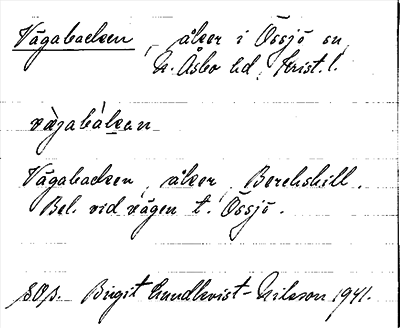 Vägabacken, åker i Össjö sn,
N. Åsbo hd, Krist. l.
Vägabacken, åker, Berekshill.
Bel. vid vägen t. Össjö.
Birgit Lundkvist-Nilsson 1941.